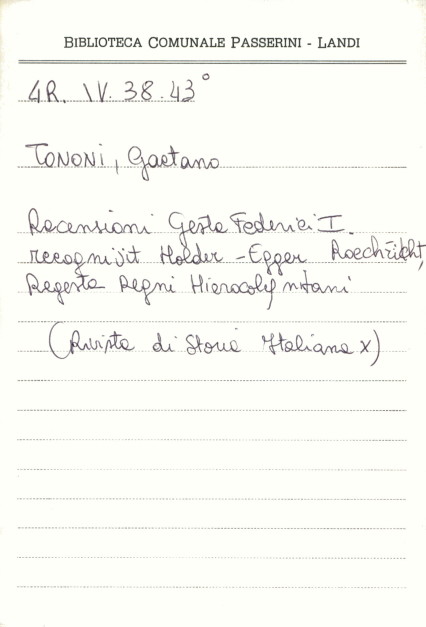 BIBLIOTECA COMUNALE PASSERINI - LANDI
4R. IV. 38.43°
TONONI, Gaetano
Recensioni Gesta Federici I.
recognivit Holder-Egger Roechricht,
Regesta Regni Hierosolymitani
(Rivista di Storia Italiana X)